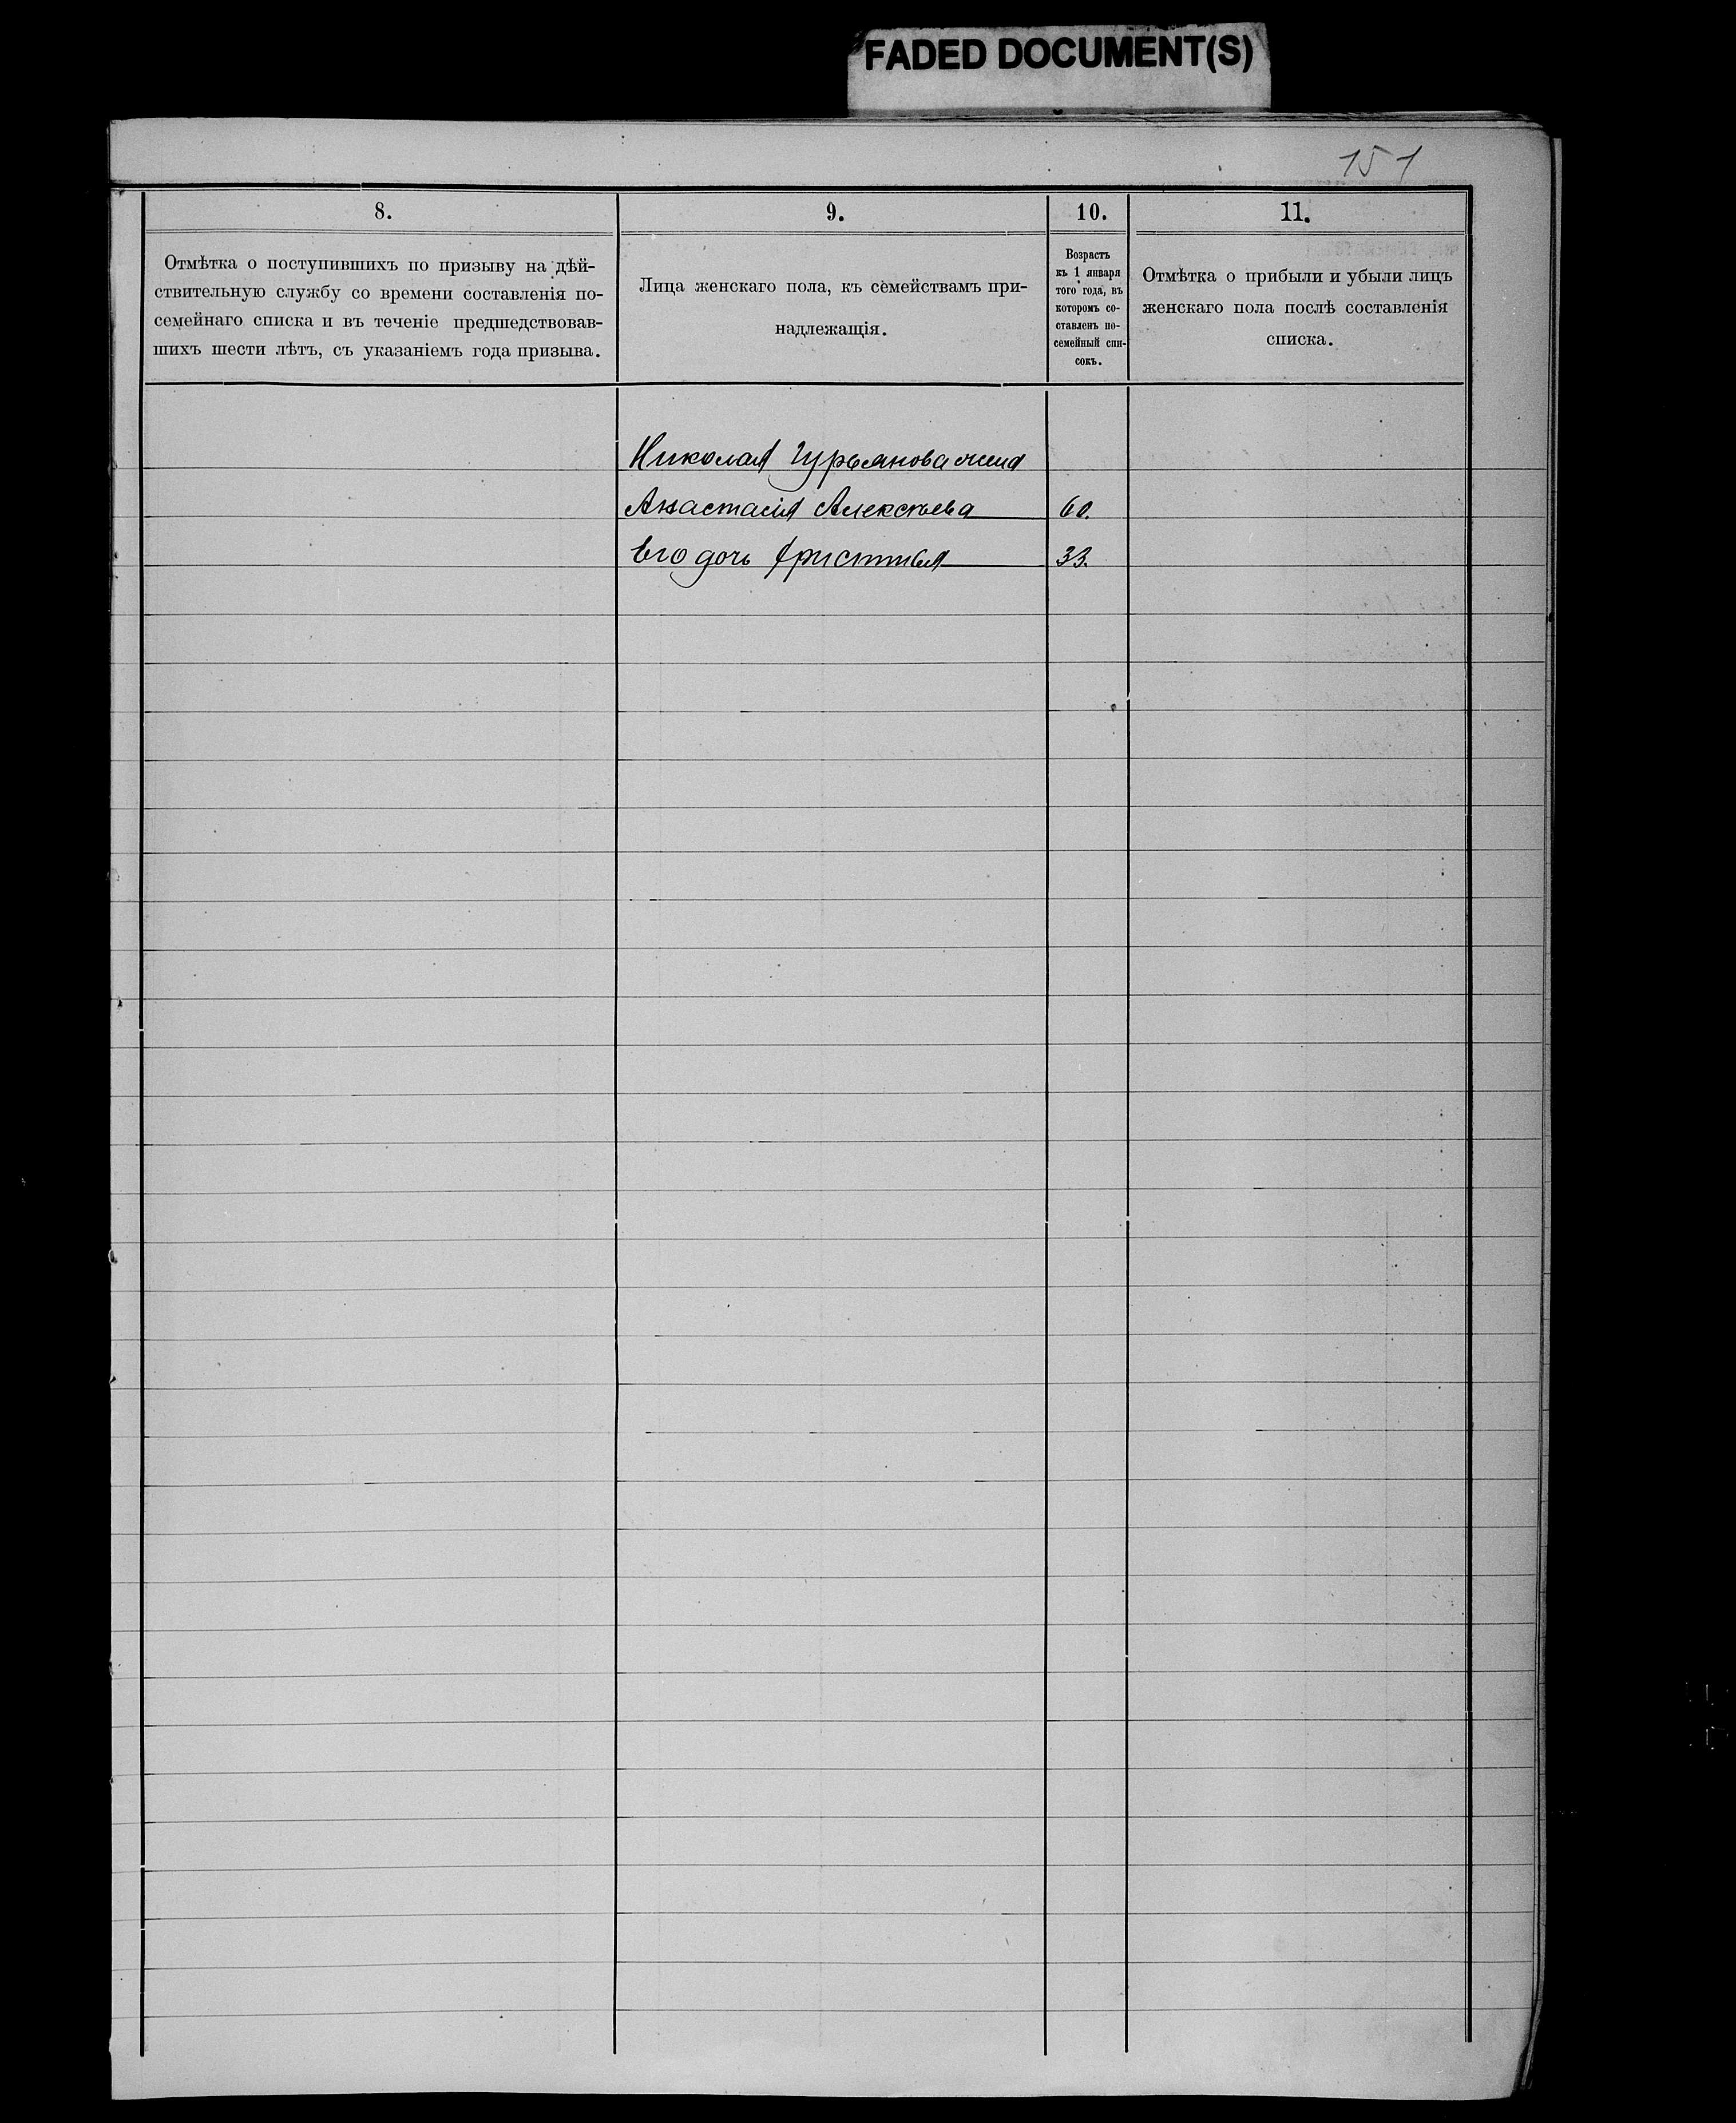 FADED DOCUMENT(S)
151
8.
Отмѣтка о поступившихъ по призыву на дѣй-
ствительную службу со времени составленія по-
семейнаго списка и въ теченіе предшедствовав-
шихъ шести лѣтъ, съ указаніемъ года призыва.
9.
Лица женскаго пола, къ семействамъ при-
надлежащія.
10.
Возрастъ
къ 1 января
того года, въ
которомъ со-
ставленъ по-
семейный спи-
сокъ.
11.
Отмѣтка о прибыли и убыли лицъ
женскаго пола послѣ составленія
списка.
Николая Гурьянова жена
Анастасія Алексѣева 60.
Его дочь 33.